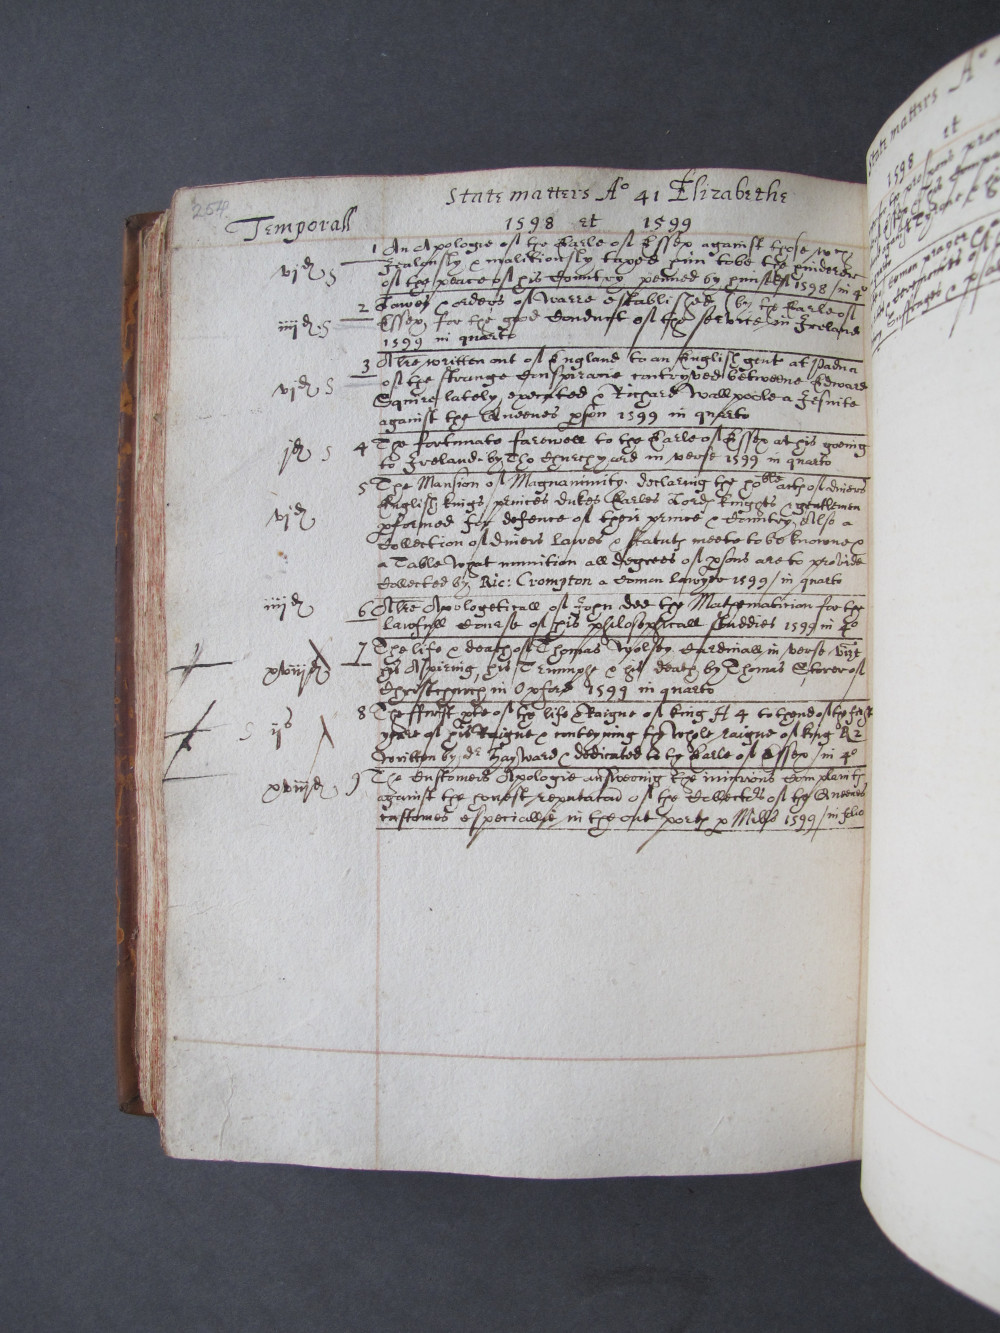 254
State matters Ao 41 Elizabethe
Temporall
1598 et 1599
1 An Apologie of the Earle of Essex against those wch
Jealously & malitiously taxed him to be the hinderer
vjd s
of the peace of his Country penned by himself 1598 / in 4o
2 Lawes & orders of Warre established (by the Earle of
iiijd s
Essex, for the good Conduct of the service in Ireland
1599 in quarto
3 A lre written out of England to an English gent at Padua
of the strange Conspiracie contryved betweene Edward
vjd s
Squire lately executed & Richard Wallpoole a Jesuite
against the Queenes pson 1599 in quarto
jd s
4 The fortunate farewell to the Earle of Essex at his goeing
to Ireland. by Tho Churchyard in verse 1599 in quarto
5 The Mansion of Magnanimity. declaring the noble acts of divers
English kings, princes dukes Earles Lords knights & gentlemen
vjd
pformed for defence of their prince & Countrey, Also a
Collection of divers lawes & statuts meete to be knowne &
a Table what munition all degrees of psons are to provide
Collected by Ric: Crompton a Comon lawyer 1599 / in quarto
iiijd
6 A lre Apologeticall of John Dee the Mathematician for the
lawfull Course of his philosophicall studdies 1599 in 4o
7 The life & death of Thomas Wolsey Cardinall in verse vizt
xviijd
his Aspiring, his Triumph & his death by Thomas Storer of
Christchurch in Oxford 1599 in quarto
8 The first pte of the life & Raigne of king H 4 to thend of the first
s ijs
yeare of his Raigne & conteyning the whole raigne of king R 2
written by dr Hayward & dedicated to the Earle of Essex / in 4o
xviijd
9 The Customers Apologie answering the Complaints
against the honest reputacon of the Collectors of the Queenes
customes especiallie in the out ports p Mills 1599 / in folio
State matters Ao
1598 et